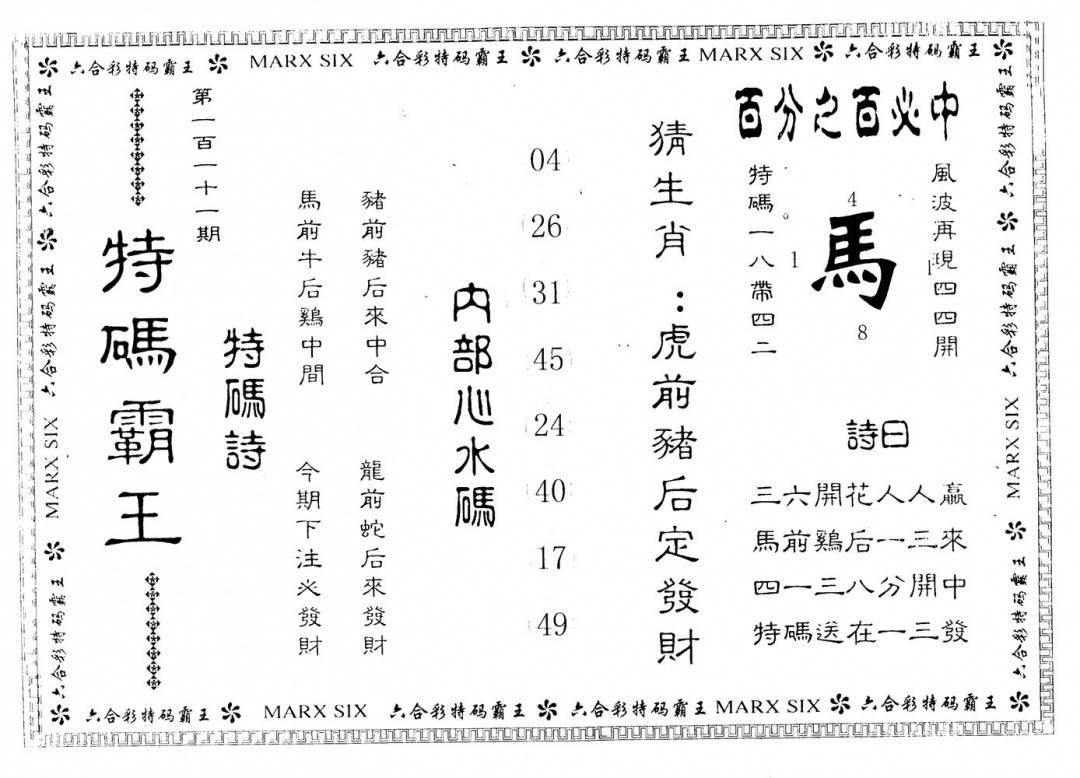 六合彩特码霸王 MARX SIX 六合彩特码霸王 六合彩特码霸王 MARX SIX 六合彩特码霸王
百分之百必中
風波再現四四開
4
馬
1
1
8
特碼一八帶四二
詩曰
三六開花人人贏
馬前鷄后一三來
四一三八分開中
特碼送在一三發
猜生肖：虎前豬后定發財
04
26
31
45
24
40
17
49
内部心水碼
豬前豬后來中合
龍前蛇后來發財
馬前牛后鷄中間
今期下注必發財
特碼詩
第一百一十一期
特碼霸王
六合彩特码霸王
六合彩特码霸王
六合彩特码霸王
MARX SIX
六合彩特码霸王
六合彩特码霸王
六合彩特码霸王
六合彩特码霸王
MARX SIX
六合彩特码霸王
六合彩特码霸王 MARX SIX 六合彩特码霸王 六合彩特码霸王 MARX SIX 六合彩特码霸王